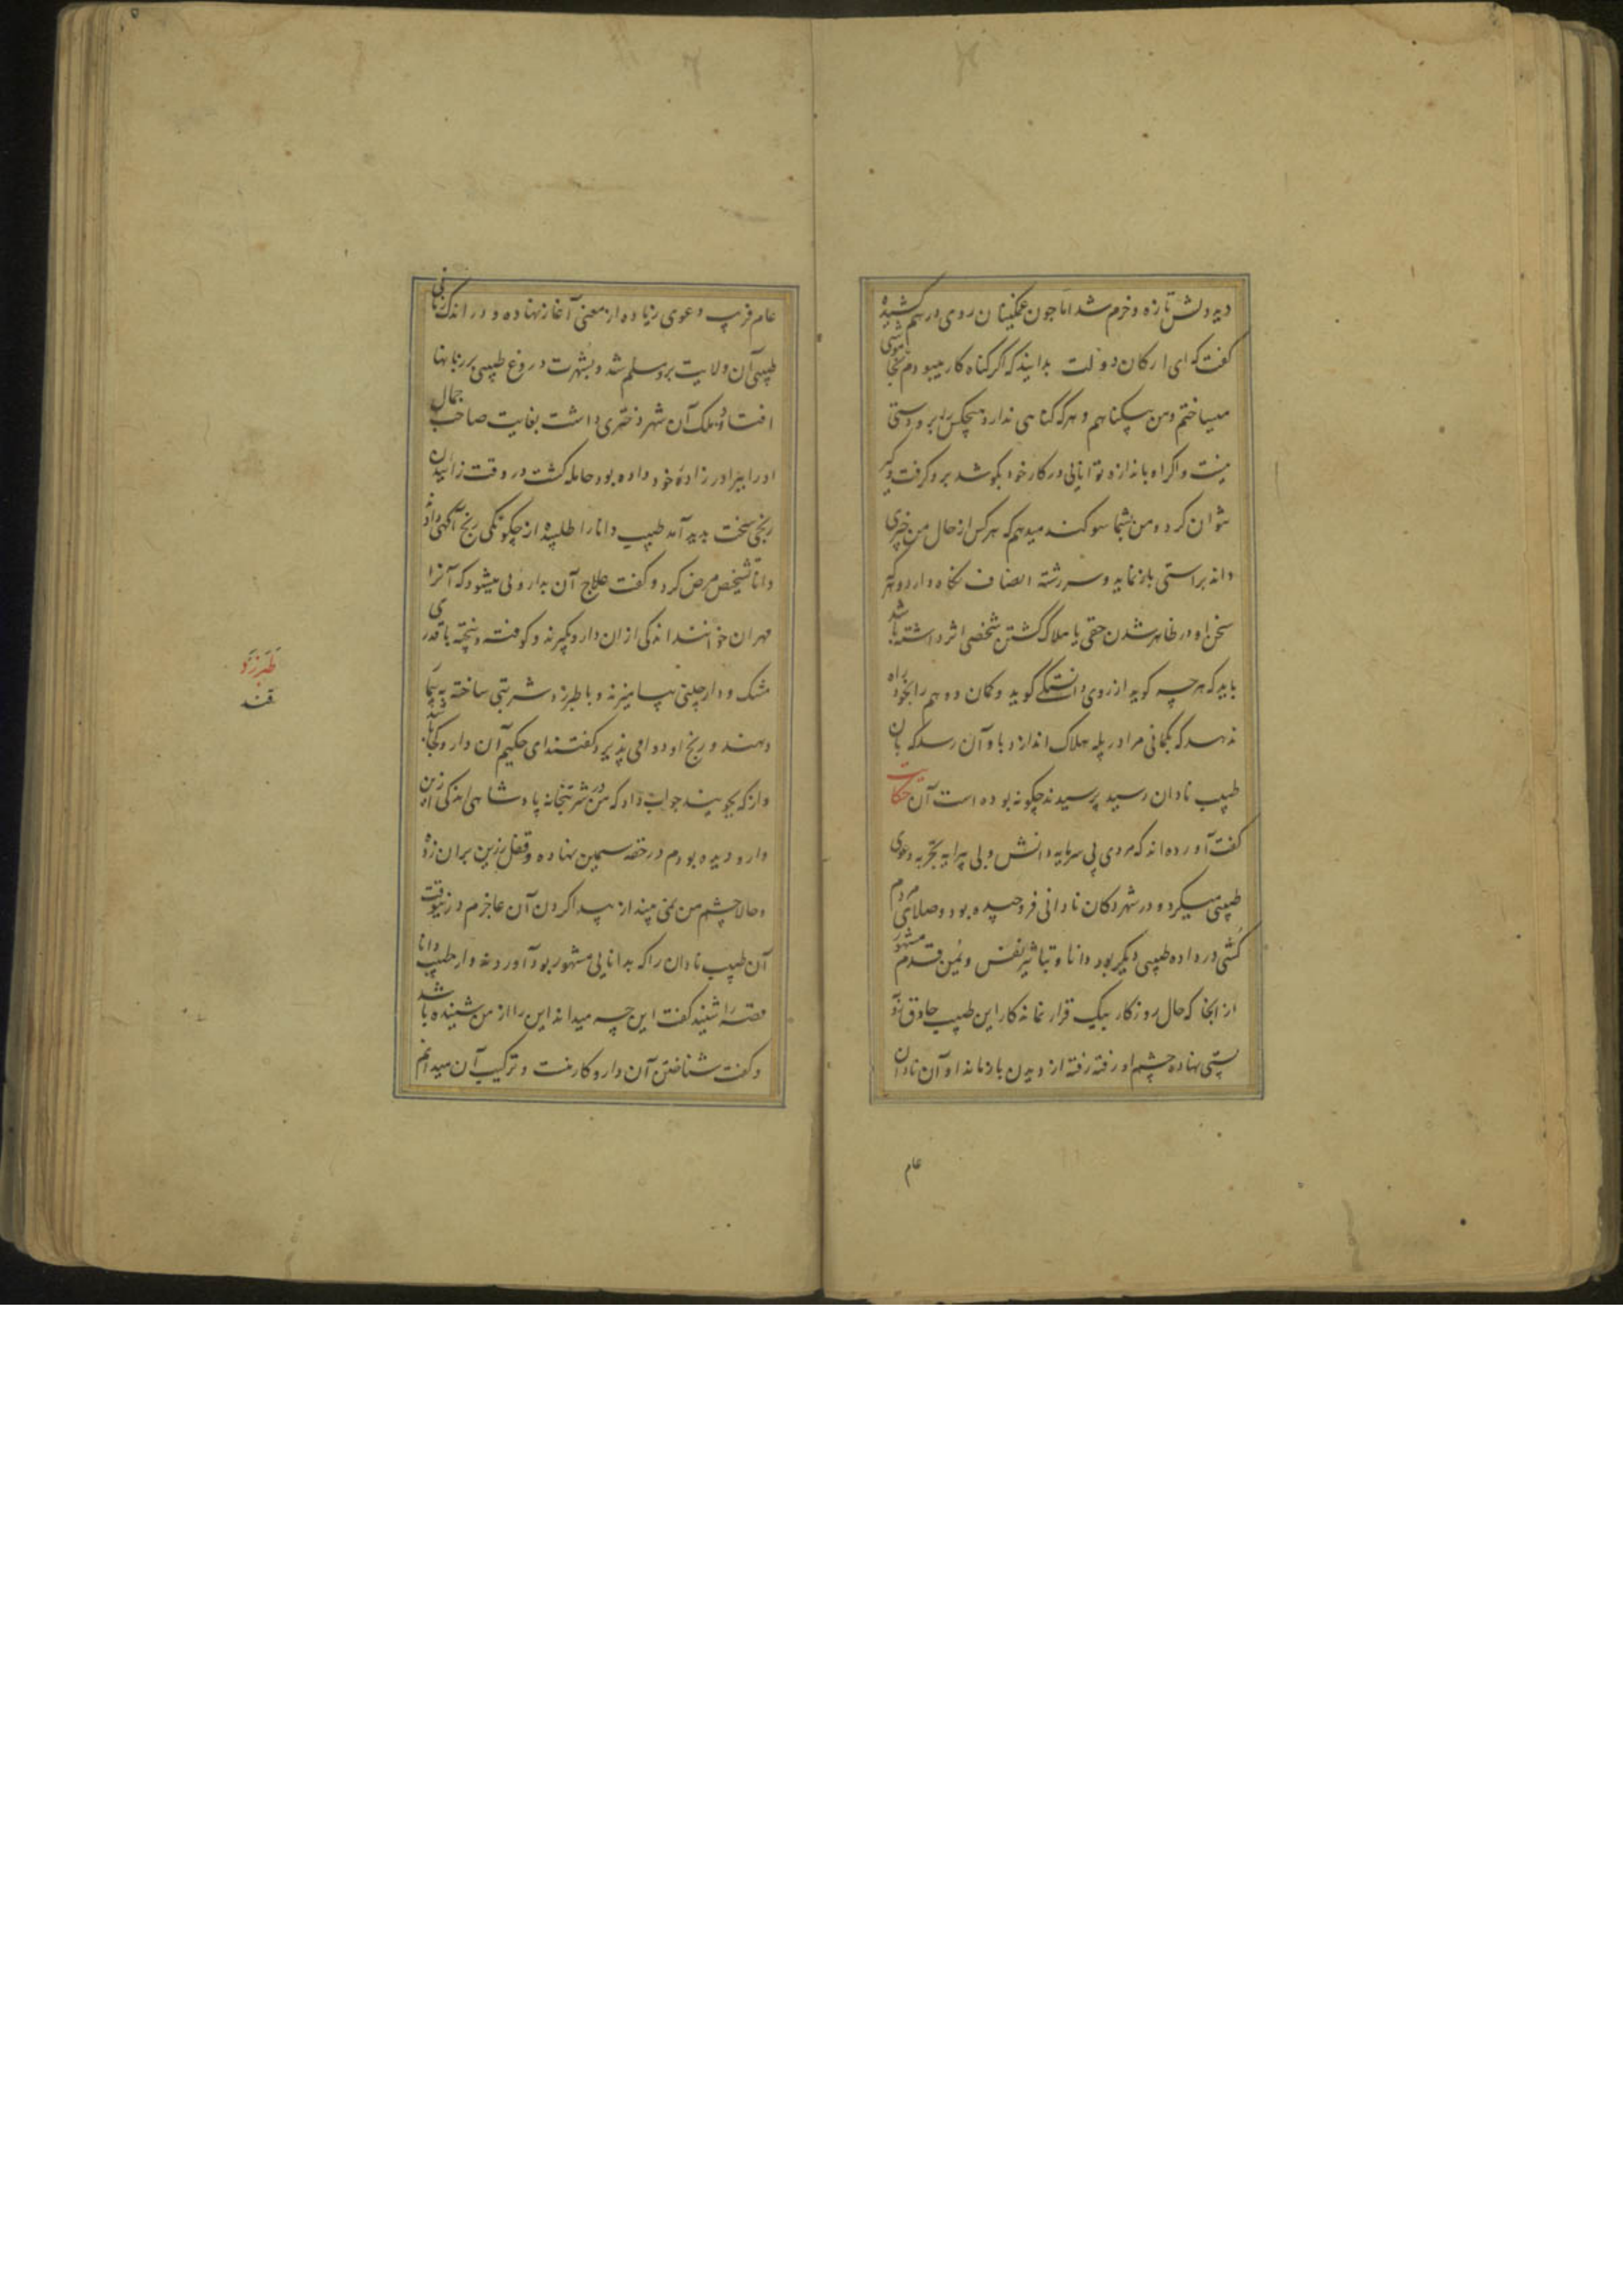 دید دلش تازه و خرم شد اما چون غمگینان روی درهم کشیده
گفت که ای ارکان دولت بدانید که اگر گناه کار میبودم بخاموشی
میساختم و من بیگناهم و هر که گناهی ندارد هیچکس را برو دستی
نیست و اگر او باندازه توانایی در کار خود بکوشد برو گرفت و گیر
نتوان کرد و من بشما سوگند میدهم که هر کس از حال من خبری
داند براستی باز نماید و سررشته انصاف نگاه دارد و که
سخن او در ظاهر شدن حقی یا هلاک گشتن شخصی اثر داشته باشد
باید که هر چه گوید از روی دانستگی گوید و گمان و وهم را بخود راه
ندهد که بگمانی مرا در پله هلاک اندازد باو آن رسد که بآن
طبیب نادان رسید پرسیدند چگونه بوده است آن حکایت
گفت آورده اند که مردی بی سرمایه دانش و بی پیرایه تجربه دعوی
طبیبی میکرد و در شهر دکان نادانی فروچیده بود و صلای مردم
کشی در داده طبیبی دیگر بود دانا و بتاثیر نفس و یمن قدم مشهور
از آنجا که حال روزگار بیک قرار نماند کار این طبیب حاذق رو
بپستی نهاده چشم او رفته رفته از دیدن باز ماند و آن نادان
عام
عام فریب دعوی زیاده از معنی آغاز نهاده و در اندک زمانی
طبیبی آن ولایت برو مسلم شد و بشهرت دروغ طبیبی بر زبانها
افتاد و ملک آن شهر دختری داشت بغایت صاحب جمال
او را ببرادر زاده خود داده بود حامله گشت در وقت زاییدن
رنجی سخت پدید آمد طبیب دانا را طلبیده از چگونگی رنج آگهی دادند
دانا تشخیص مرض کرد و گفت علاج آن بدارویی میشود که آنرا
مهران خوانند اندکی از ان دارو بگیرند و کوفته و بیخته با قدری
مشک و دارچینی بیامیزند و با طبرزد شربتی ساخته به بیمار
دهند و رنج او دوا می پذیرد گفتند ای حکیم آن دارو کجا باشد
و از که بجویند جواب داد که من در شربتخانه پادشاهی اندکی ازین
دارو دیده بودم در حقه سیمین نهاده و قفل زرین بران زده
و حالا چشم من نمی بیند از پیدا کردن آن عاجزم درینوقت
آن طبیب نادان را که بدانایی مشهور بود آوردند و از طبیب دانا
قصه را شنید گفت این چه میداند این را از من شنیده باشد
و گفت شناختن آن دارو کار منست و ترکیب آن میدانم
طبرزد
قند